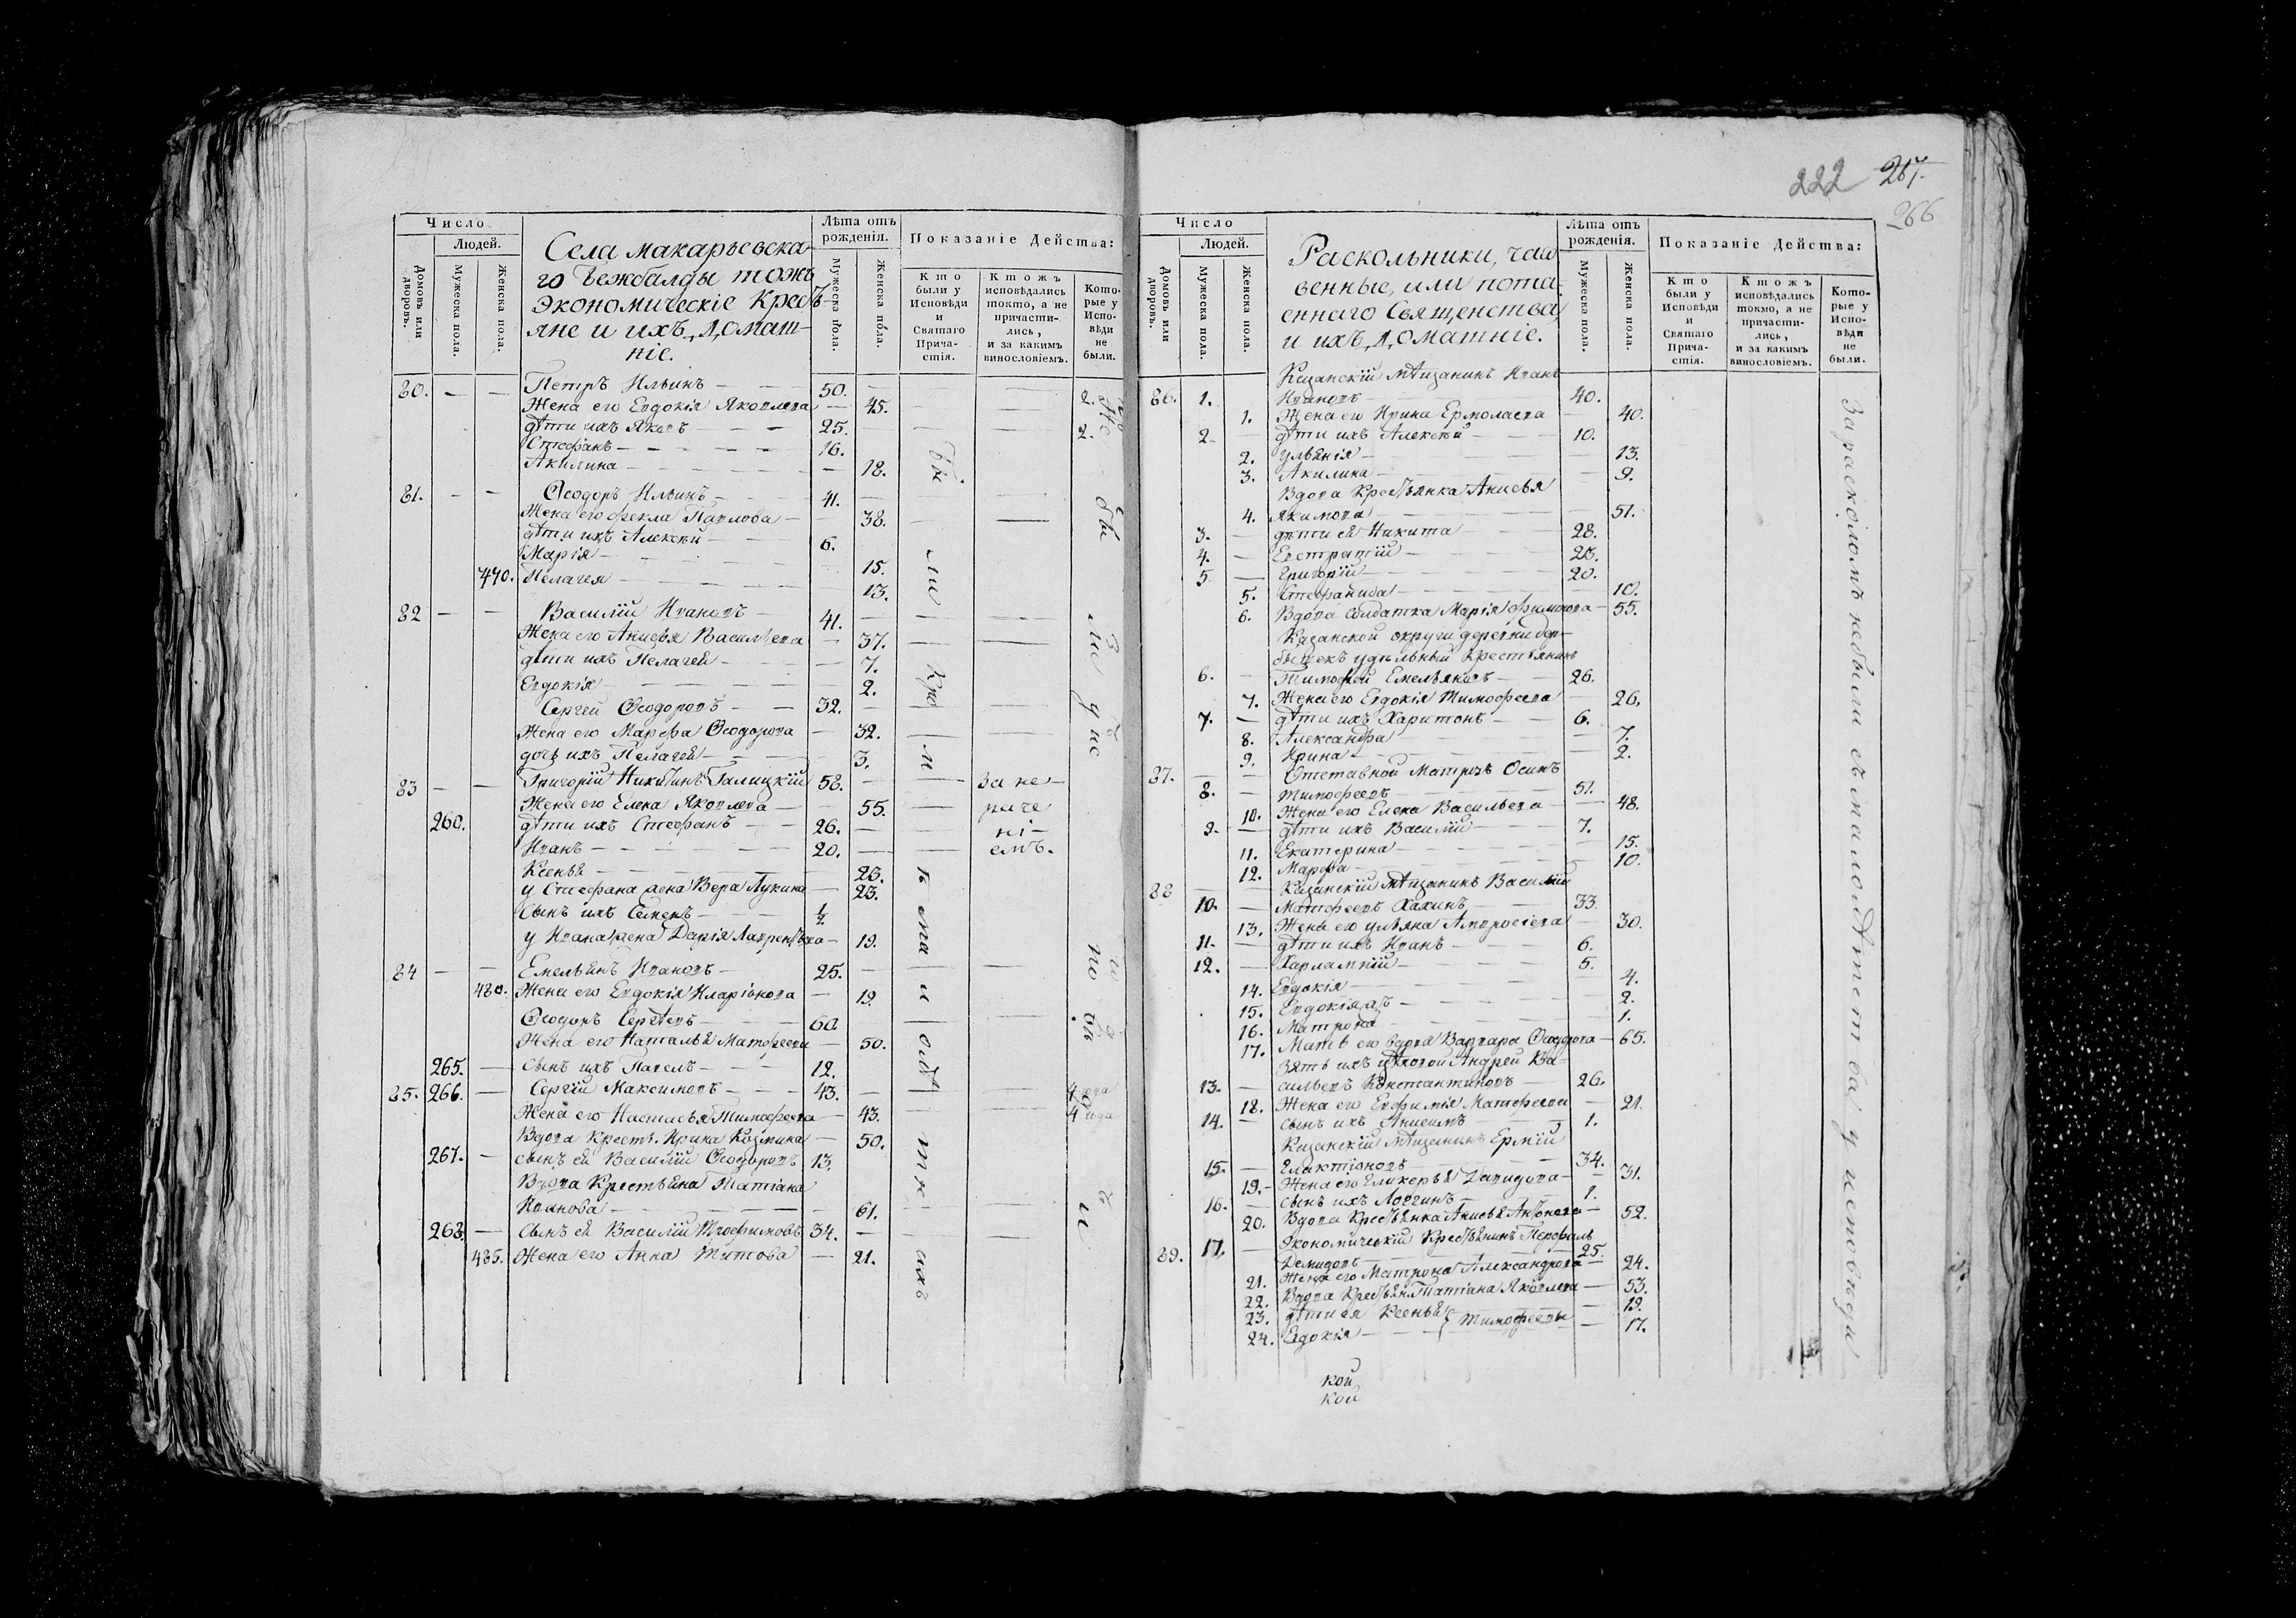 222 267.
266
Число
Людей.
Домовъ или дворовъ.
Мужеска пола.
Женска пола.
Села макарьевска-
го тожъ
экономическіе Кресть-
яне и ихъ домаш-
ніе.
Лѣта отъ рожденія.
Мужеска пола.
Женска пола.
Показаніе Действа:
Кто были у Исповѣди и Святаго Прича- стія.
Ктожъ исповѣдались токмо, а не причасти- лись, и за какимъ винословіемъ.
Кото- рые у Испо- вѣди не были.
80. — — Петръ Ильинъ — 50. —
Жена его Евдокія Яковлева — 45. 2.
дѣти ихъ Яковъ — 25. 2.
Стефанъ — 16.
Акилина — 18.
81. — — Ѳеодоръ Ильинъ — 41. —
Жена его Фекла Павлова — 38.
дѣти ихъ Алексѣй — 6.
Марія — 15.
470. Пелагея — 13.
82 — — Василій Ивановъ — 41. —
Жена его Анисья Васильева — 37.
дѣти ихъ Пелагея — 7.
Евдокія — 2.
Сергей Ѳеодоровъ — 32. —
Жена его Марфа Ѳеодорова — 32.
дочь ихъ Пелагея — 3.
83 — — Григорій Никитинъ Галицкій 58. — за не-
Жена его Елена Яковлева — 55. раче
260. дѣти ихъ Стефанъ — 26. — ні-
Иванъ — 20. — емъ.
Ксенья — 23.
у Стефана жена Вера Лукина — 23.
Сынъ ихъ Семенъ — 1/2
у Ивана жена Дарія Лаврентьева — 19.
84 — — Емельянъ Ивановъ — 25. —
480. Жена его Евдокія Иларіонова — 19.
Ѳеодоръ Сергѣевъ — 60.
Жена его Наталья Матфеева — 50.
265. — Сынъ ихъ Павелъ — 12.
85. 266. — Сергій Максимовъ — 43. — 4 года
Жена его Настасья Тимофеева — 43. 4 года
Вдова Крестъ. Ирина Козмина — 50.
267. — сынъ ей Василій Ѳеодоровъ 13.
Вдова Крестьяна Татіана
Иванова — 61.
268. — Сынъ ей Василій Трофимовъ 34. —
485. Жена его Анна Титова — 21.
Число
Людей.
Домовъ или дворовъ.
Мужеска пола.
Женска пола.
Раскольники,
или пота-
еннаго Священства
и ихъ домашніе.
Лѣта отъ рожденія.
Мужеска пола.
Женска пола.
Показаніе Действа:
Кто были у Исповѣди и Святаго Прича- стія.
Ктожъ исповѣдались токмо, а не причасти- лись, и за какимъ винословіемъ.
Кото- рые у Испо- вѣди не были.
Казанскій мѣщанинъ Иванъ
86. 1. Ивановъ 40.
1. Жена его Ирина Ермолаева — 40.
2. — дѣти ихъ Алексѣй — 10.
2. Ульянія — 13.
3. Акилина — 9.
Вдова Крестьянка Анисья
4. Якимова — 51.
3. — дѣти ей Никита — 28.
4. — Евстратій — 23.
5 — Григорій — 20.
5. Стефанида — 10.
6. Вдова Солдатка Марія — 55.
Казанской округи деревни
удѣльный Крестьянинъ
6. — Тимофей Емельяновъ — 26.
7. Жена его Евдокія Тимофеева — 26.
7. — дѣти ихъ Харитонъ — 6.
8. Александра — 7.
9. Ирина — 2.
87. — — Отставной Матрозъ Осипъ
8. — Тимофеевъ — 51.
10. Жена его Елена Васильева — 48.
9. — дѣти ихъ Василій — 7.
11. Екатерина — 15.
12. Марфа — 10.
88 — — Казанскій мѣщанинъ Василій
10. — Матфеевъ Хахинъ — 33.
13. Жена его ульяна Амвросіева — 30.
11. — дѣти ихъ Иванъ — 6.
12. — Харлампій — 5.
14. Евдокія — 4.
15. Евдокія — 2.
16. Матрона — 1.
17. Мать его вдова Варвара Ѳеодорова — 65.
Зять ихъ Андрей Ва-
13. — сильевъ Константиновъ — 26.
18. Жена его Евфимія Матфеева — 21.
14. — сынъ ихъ Анисимъ — 1.
Казанскій мѣщанинъ Ермій
15. — Галактіоновъ — 34.
19. — Жена его Гликерья Давидова — 31.
16. — сынъ ихъ Логгинъ — 1.
20. Вдова Крестьянка Анисья Антонова — 52.
Экономическій Крестьянинъ Перфилъ
89. 17. — Демидовъ — 25.
21. Жена его Матрона Александрова — 24.
22. Вдова Крестьян. Татіана Яковлева — 53.
23. дѣти ея Ксенья Тимофеевы — 19.
24. Евдокія — 17.
За расколомъ небыли съ малолѣтства у исповѣди
кой
кой